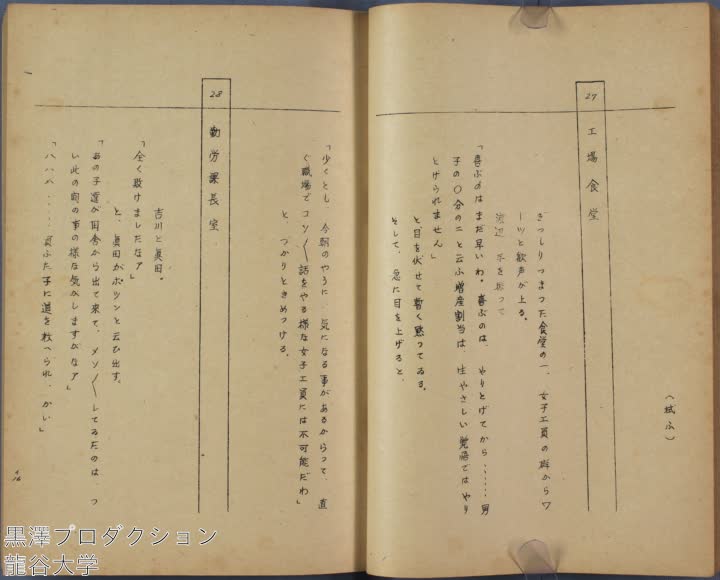 (城ふ)
27 工場食堂
ぎっしりつまつた食堂の一、女子工員の群からワ
ーツと歓声が上る。
渡辺 手を振って
「喜ぶのはまだ早いわ。喜ぶのは、やりとげてから……男
子の〇分の二と云ふ増産割当は、生やさしい覚悟ではやり
とげられません」
と、目を伏せて暫く黙つてゐる。
そして、急に目を上げると、
「少くとも、今朝のやうに、気になる事があるからつて、直
ぐ職場でコソ〳〵話をやる様な女子工員には不可能だわ」
と、つかりときめつける。
28 勤労課長室
吉川と眞田。
「全く敗けましたなア」
と、眞田がポツンと云ひ出す。
「あの子達が田舎から出て来て、メソ〳〵してゐたのは、つ
い此の間の事の様な気がしますがなア」
「ハハハ……負ふた子に道を教へられ、かい」
黒澤プロダクション
龍谷大学